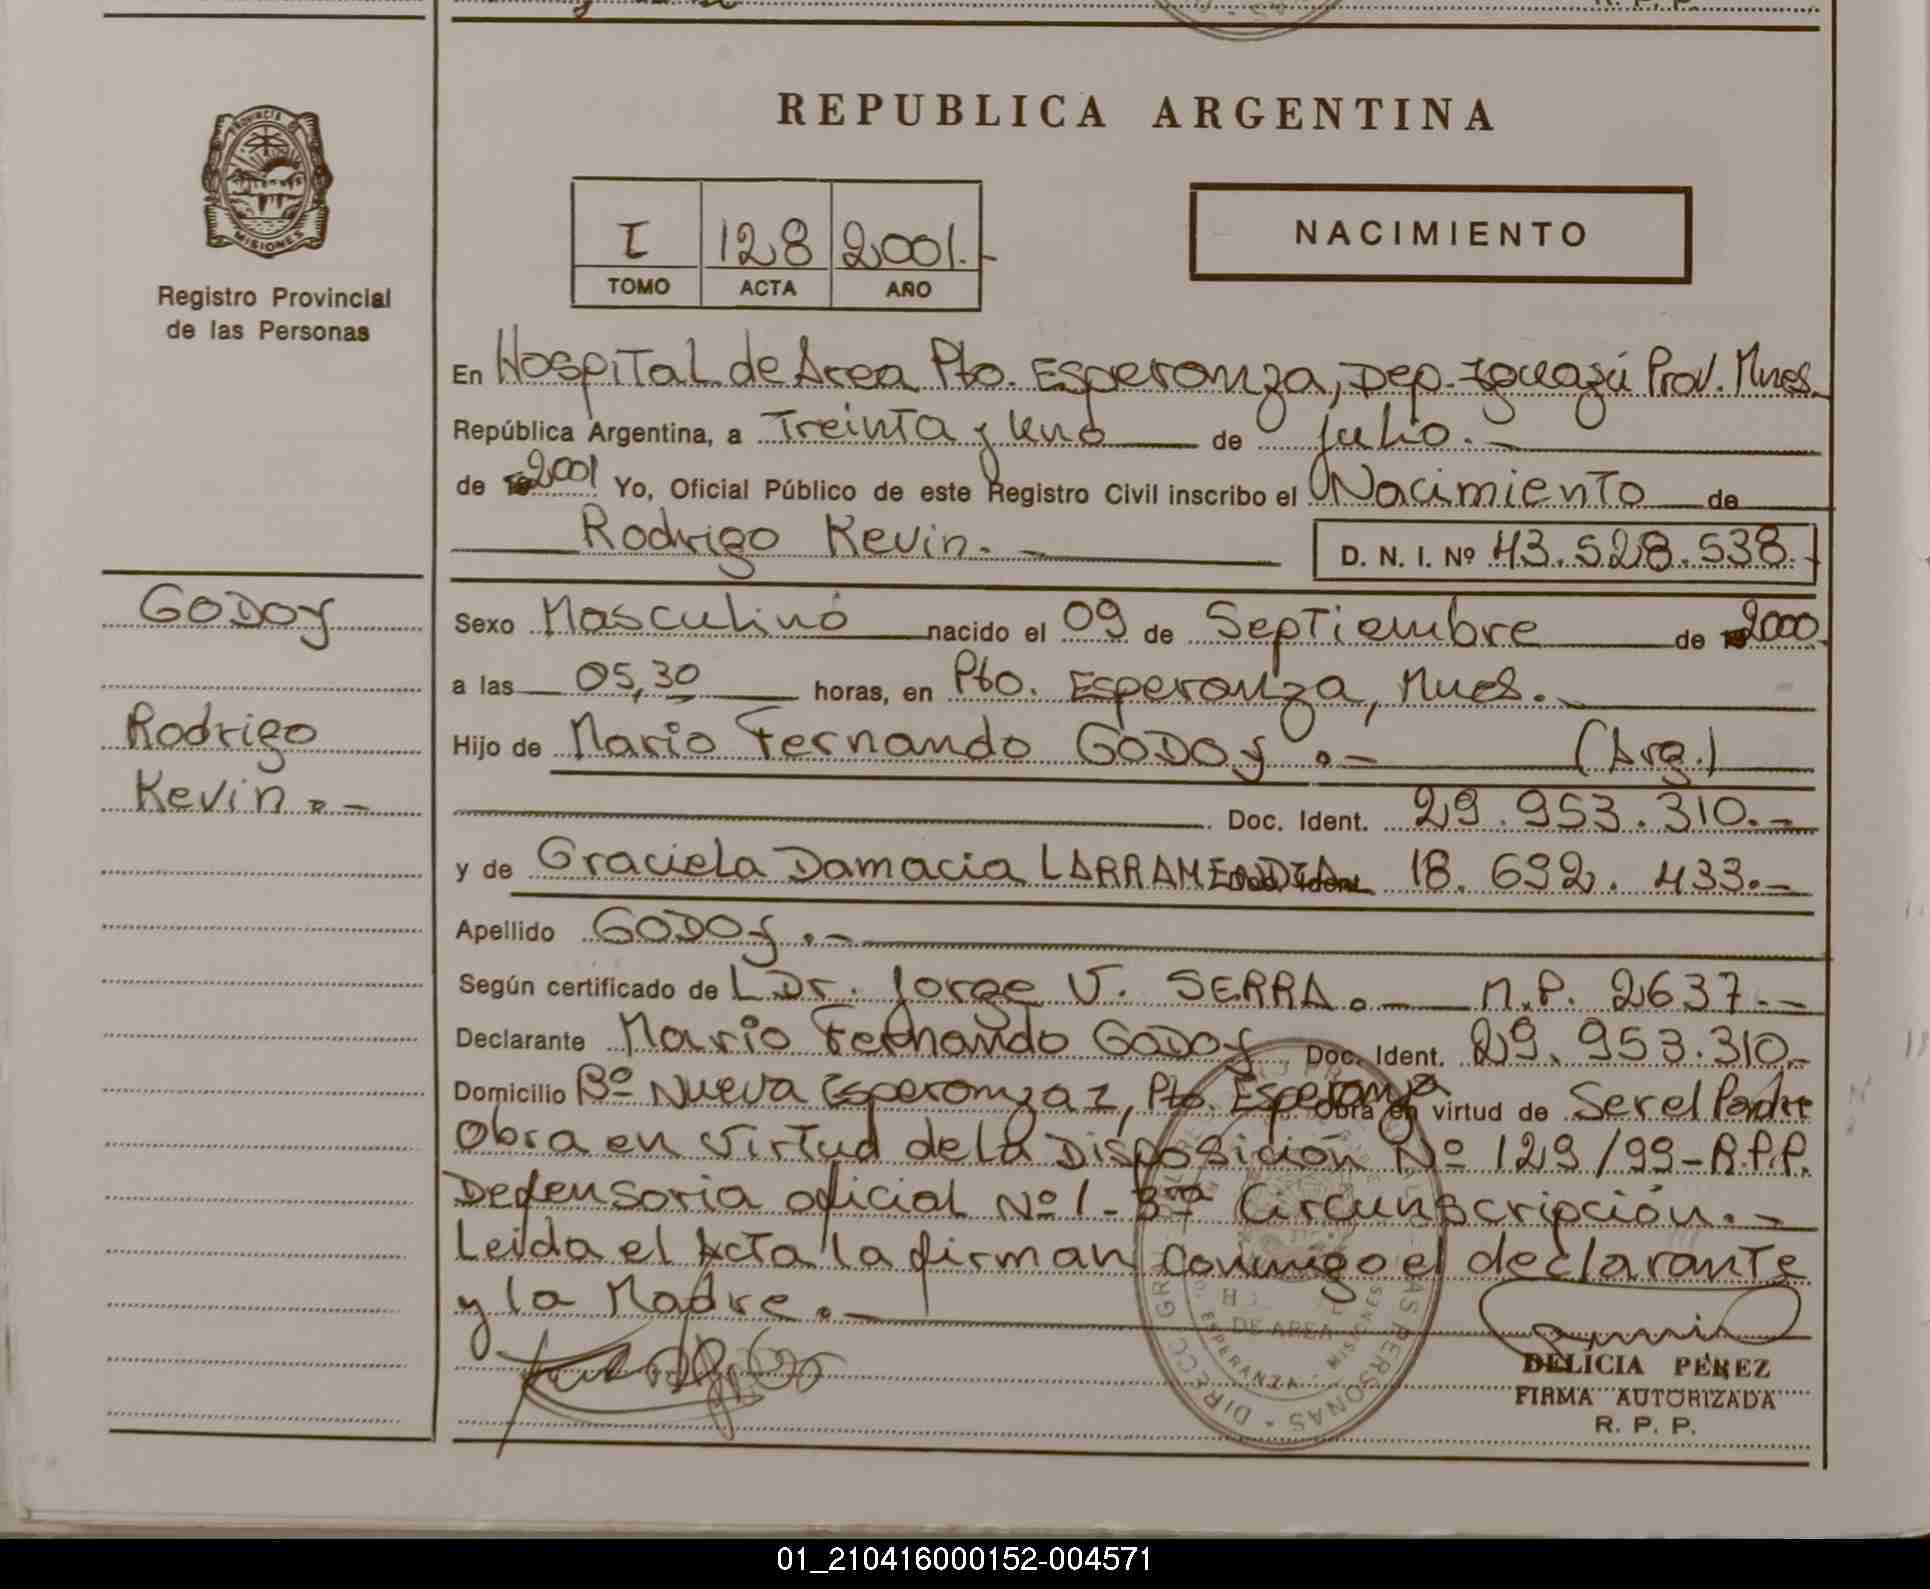 REPUBLICA ARGENTINA
PROVINCIA DE
MISIONES
Registro Provincial
de las Personas
I 128 2001.-
TOMO ACTA AÑO
NACIMIENTO
En Hospital de Area Pto. Esperanza, Dep. Iguazú Prov. Mnes.
República Argentina, a Treinta y Uno de Julio.-
de 2001 Yo, Oficial Público de este Registro Civil inscribo el Nacimiento de
Rodrigo Kevin.- D. N. I. Nº 43.528.538.-
GODOY
Rodrigo
Kevin.-
Sexo Masculino nacido el 09 de Septiembre de 2000.
a las 05,30 horas, en Pto. Esperanza, Mnes.-
Hijo de Mario Fernando GODOY.- (Arg.)
Doc. Ident. 29.953.310.-
y de Graciela Damacia LARRAMENDIA Doc. Ident. 18.692.433.-
Apellido GODOY.-
Según certificado de L Dr. Jorge V. SERRA.- M.P. 2637.-
Declarante Mario Fernando GODOY Doc. Ident. 29.953.310.-
Domicilio Bº Nueva Esperanza I, Pto. Esperanza Obra en virtud de Ser el Padre
Obra en virtud de la Disposición Nº 129/99-R.P.P.
Defensoria oficial Nº 1-3ra Circunscripción.-
Leida el Acta la firman conmigo el declarante
y la Madre.-
DE AREA
ESPERANZA - MISIONES
DELICIA PEREZ
FIRMA AUTORIZADA
R. P. P.
01_210416000152-004571